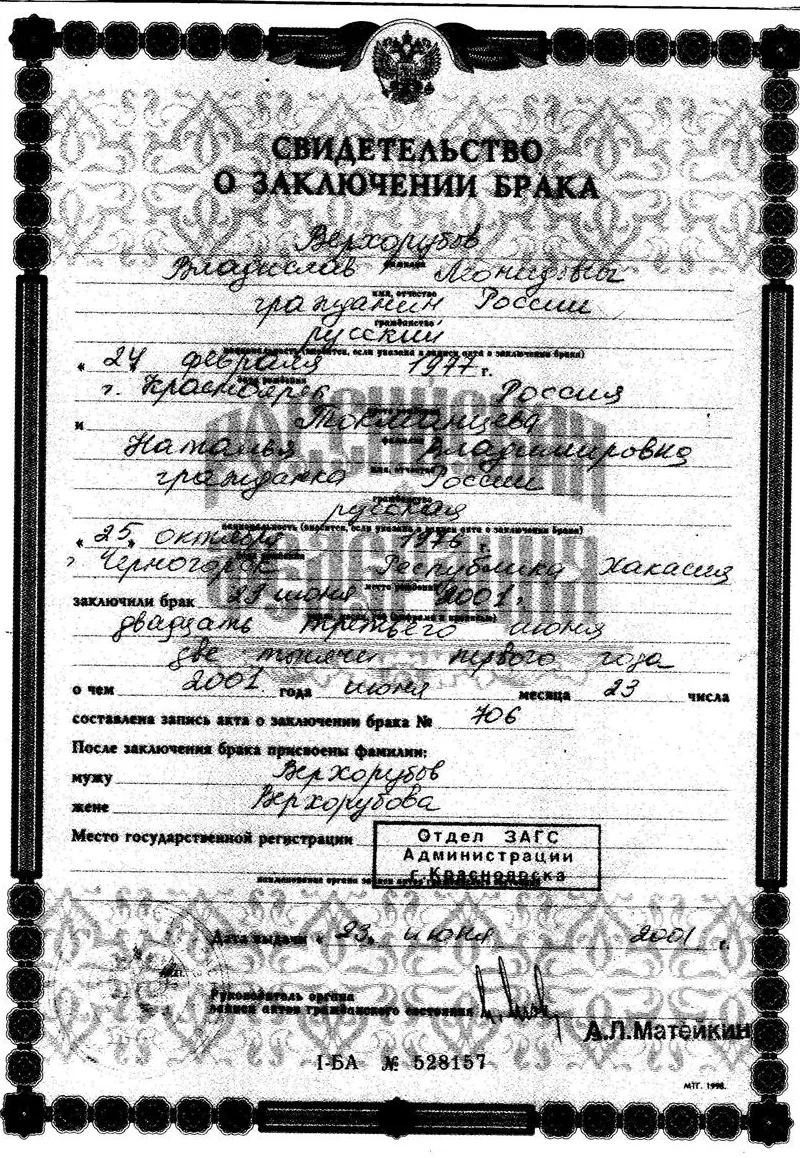 СВИДЕТЕЛЬСТВО
О ЗАКЛЮЧЕНИИ БРАКА
Верхорубов
фамилия
Владислав Леонидович
имя, отчество
гражданин России
гражданство
русский
национальность (вносится, если указана в записи акта о заключении брака)
« 24 » февраля 1977 г.
дата рождения
г. Красноярск Россия
место рождения
и
фамилия
Наталья Владимировна
имя, отчество
гражданка России
гражданство
русская
национальность (вносится, если указана в записи акта о заключении брака)
« 25 » октября 1976 г.
дата рождения
г. Черногорск Республика Хакасия
место рождения
заключили брак 23 июня 2001 г.
двадцать третьего июня
две тысячи первого года
о чем 2001 года июня месяца 23 числа
составлена запись акта о заключении брака № 706
После заключения брака присвоены фамилии:
мужу Верхорубов
жене Верхорубова
Место государственной регистрации
Отдел ЗАГС
Администрации
г. Красноярска
наименование органа записи актов гражданского состояния
Дата выдачи « 23 » июня 2001 г.
Руководитель органа
записи актов гражданского состояния
А.Л.Матейкин
I-БА № 528157
МТГ. 1998.
РОССИЙСКАЯ
ФЕДЕРАЦИЯ